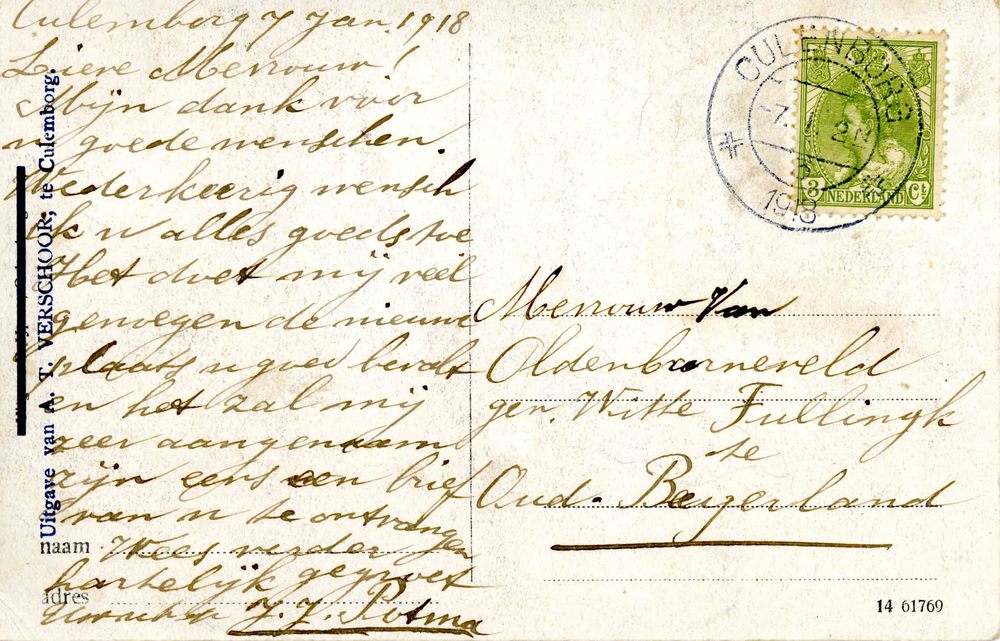 Culemborg 7 Jan. 1918
Lieve Mevrouw!
Mijn dank voor
u goede wenschen.
Wederkeerig wensch
ik u alles goeds toe
Het doet mij veel
genoegen de nieuwe
plaats u goed bevalt
en het zal mij
zeer aangenaam
zijn eens een brief
van u te ontvangen
Wees verder
hartelijk gegroet
J. J. Potma
naam
adres
Uitgave van A. T. VERSCHOOR, te Culemborg.
CULEMBORG
1918
3 Ct
NEDERLAND
Mevrouw Van
Oldenbarneveld
gen. Witte Tullingk
te
Oud-Beyerland
14 61769